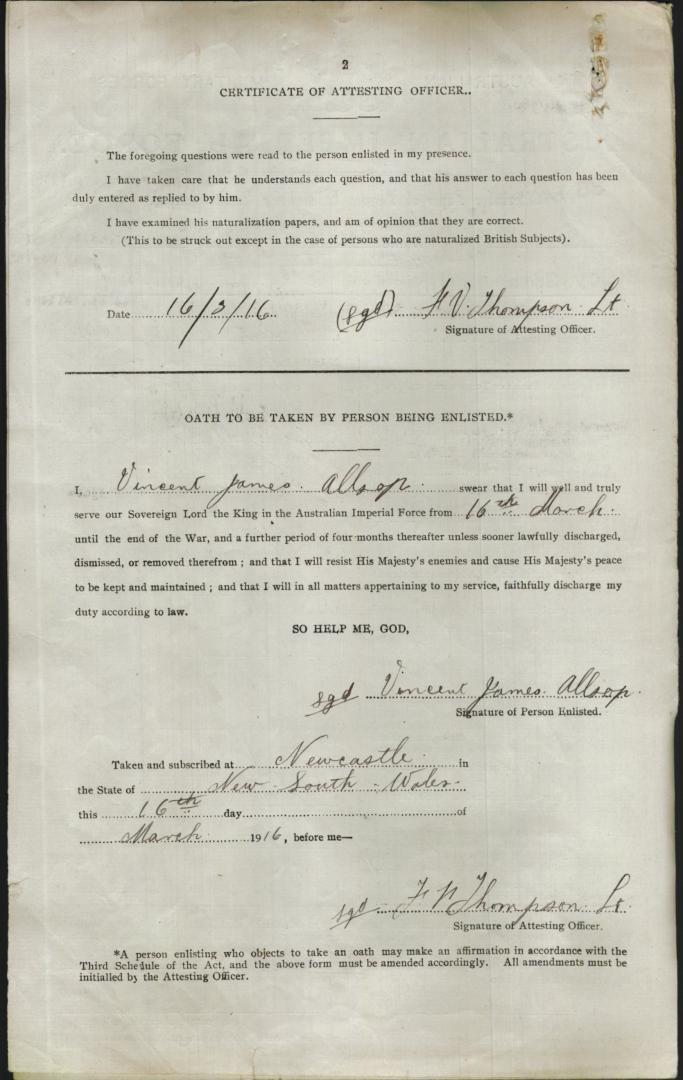 2
CERTIFICATE OF ATTESTING OFFICER..
The foregoing questions were read to the person enlisted in my presence.
I have taken care that he understands each question, and that his answer to each question has been
duly entered as replied to by him.
I have examined his naturalization papers, and am of opinion that they are correct.
(This to be struck out except in the case of persons who are naturalized British Subjects).
Date 16/3/16 (sgd) F V. Thompson Lt
Signature of Attesting Officer.
OATH TO BE TAKEN BY PERSON BEING ENLISTED.*
I, Vincent James. Allsop. swear that I will well and truly
serve our Sovereign Lord the King in the Australian Imperial Force from 16th March.
until the end of the War, and a further period of four months thereafter unless sooner lawfully discharged,
dismissed, or removed therefrom ; and that I will resist His Majesty's enemies and cause His Majesty's peace
to be kept and maintained ; and that I will in all matters appertaining to my service, faithfully discharge my
duty according to law.
SO HELP ME, GOD,
sgd Vincent James. Allsop.
Signature of Person Enlisted.
Taken and subscribed at Newcastle in
the State of New South Wales
this 16th day of
March 1916, before me—
sgd F V Thompson Lt.
Signature of Attesting Officer.
*A person enlisting who objects to take an oath may make an affirmation in accordance with the
Third Schedule of the Act, and the above form must be amended accordingly. All amendments must be
initialled by the Attesting Officer.